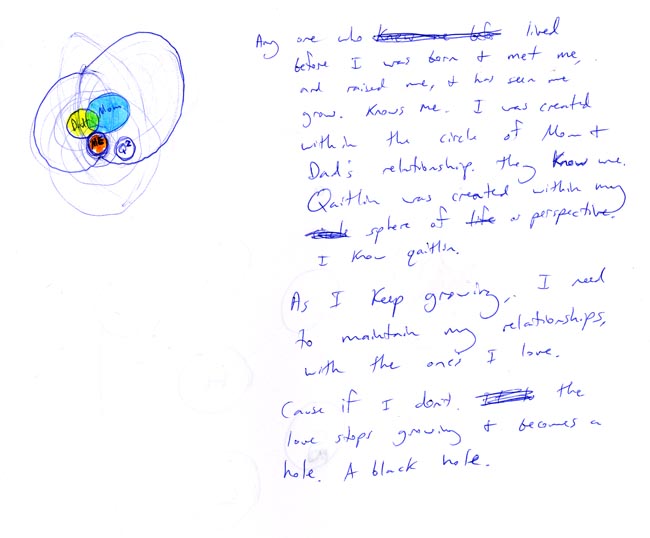 Dad
Mom
ME
Q2
Any one who lived
before I was born & met me,
and raised me, & has seen me
grow. Knows me. I was created
within the circle of Mom &
Dad's relationship. they Know me.
Qaitlin was created within my
sphere of life or perspective.
I know qaitlin.
As I Keep growing, I need
to maintain my relationships,
with the one's I love.
Cause if I don't. the
love stops growing & becomes a
hole. A black hole.